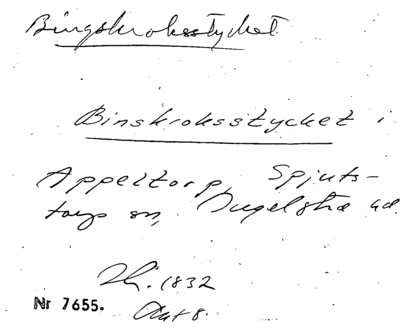 Bingskroksstycket
Binskroksstycket i
Appeltorp, Spjuts-
torps sn, Ingelsta hd.
Lh. 1832
Akt 8.
Nr 7655.